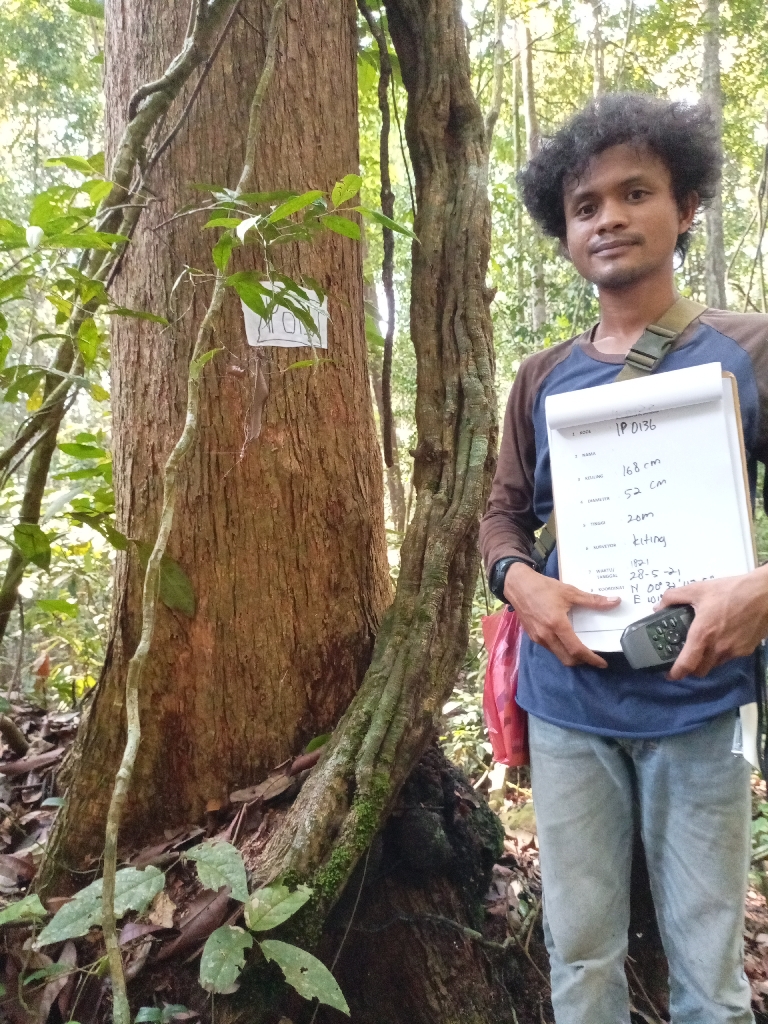 1 KODE IP 0136
2 NAMA
3 KELILING 168 cm
4 DIAMETER 52 cm
5 TINGGI 20m
6 SURVEYOR Kiting
7 WAKTU/ 1821
TANGGAL 28-5-21
8 KOORDINAT N 00°32'
E